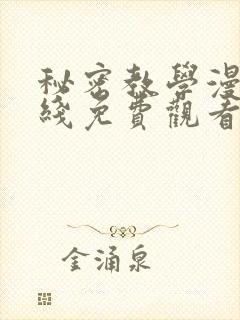 秘密教學漫
綫免費觀看
金涌泉